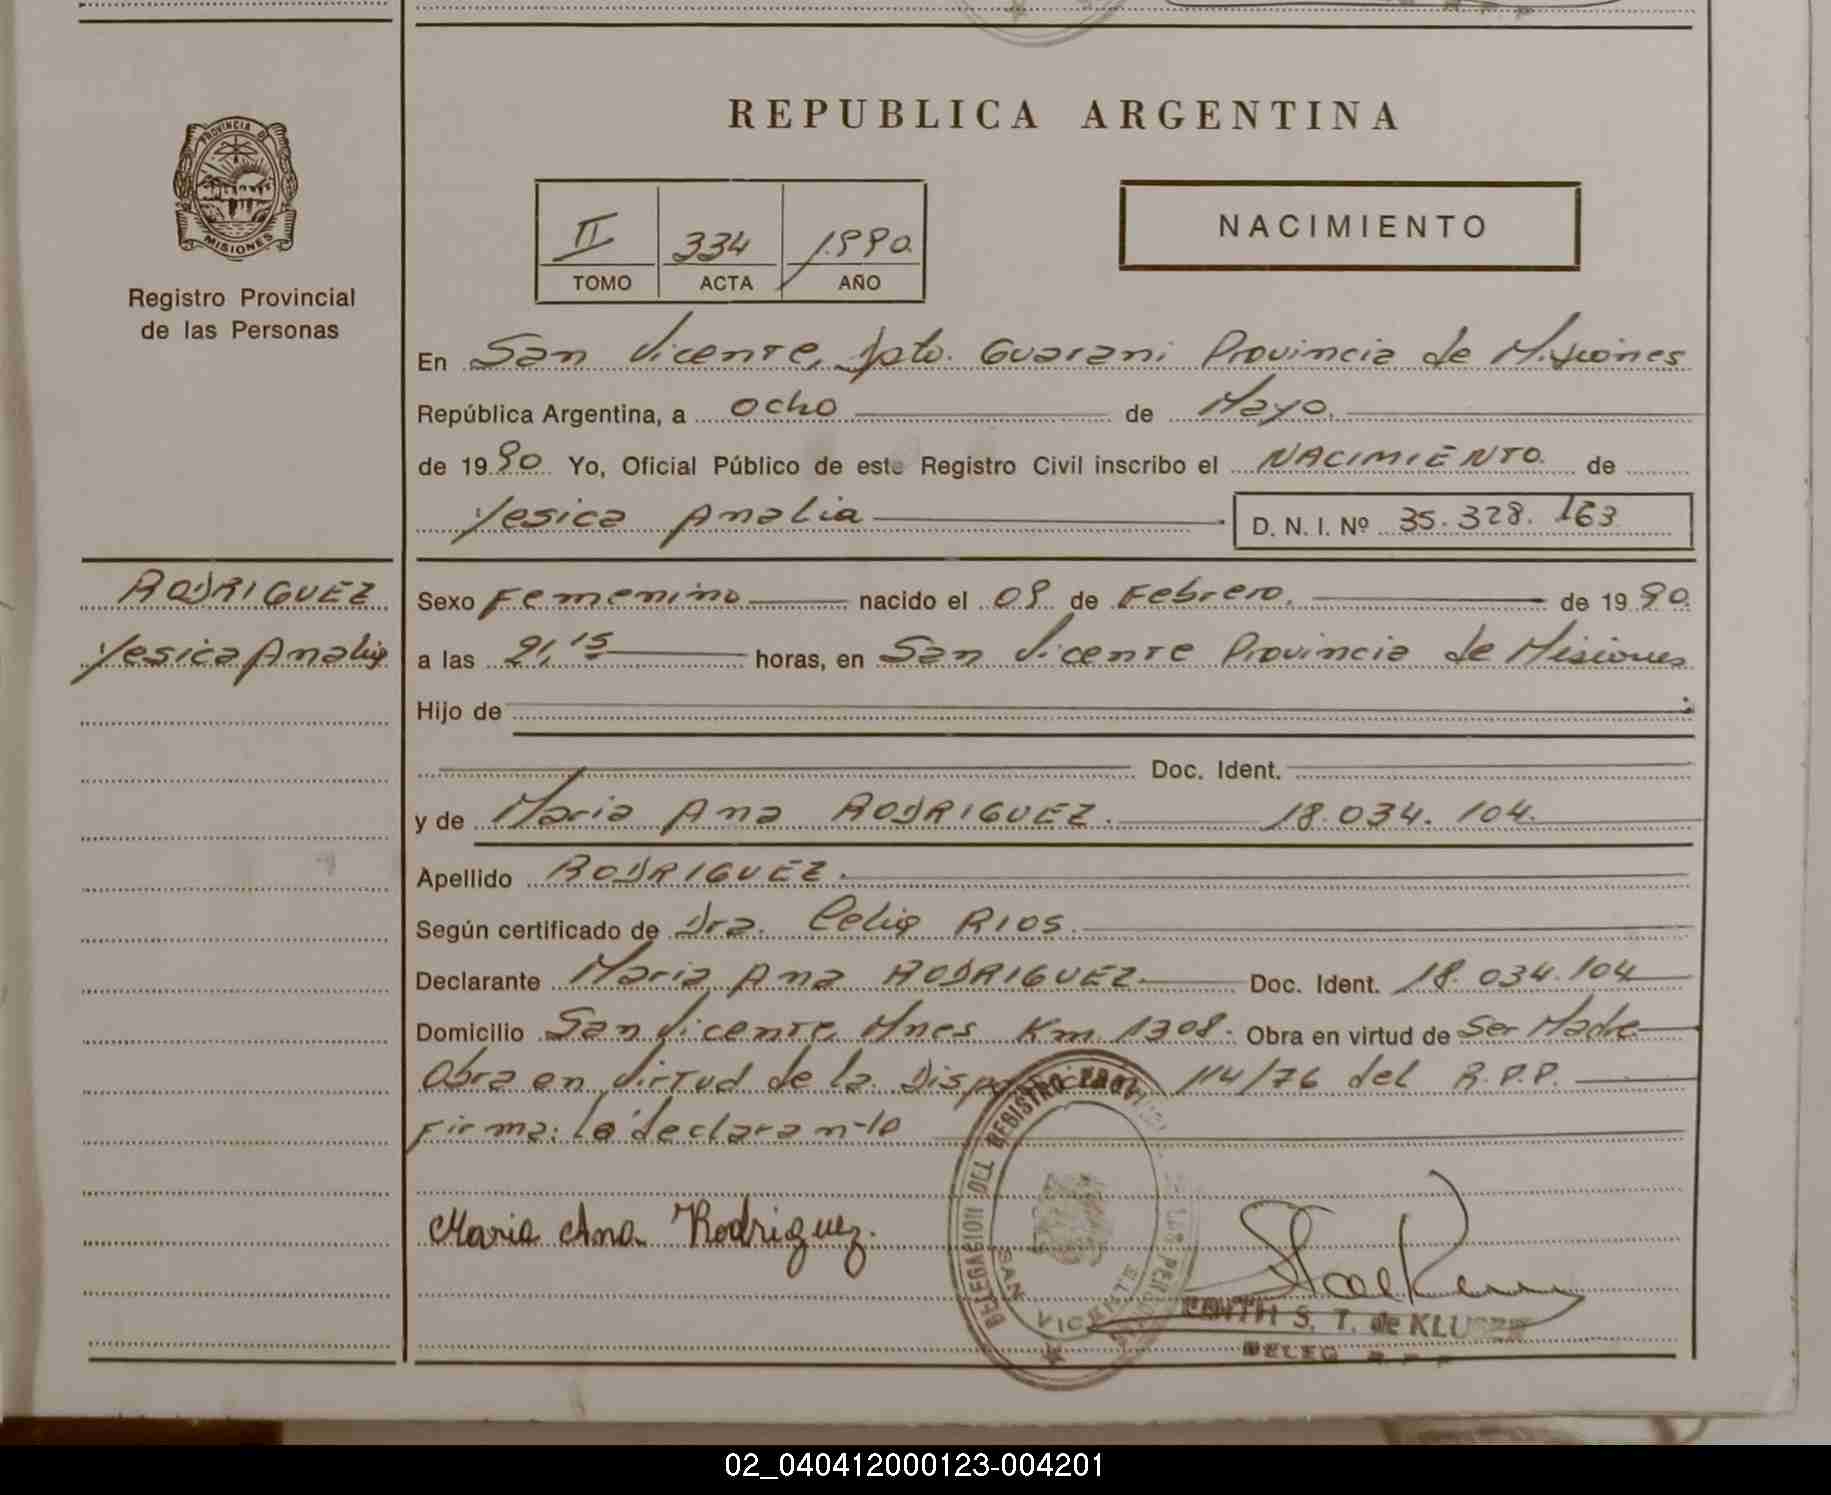 REPUBLICA ARGENTINA
PROVINCIA DE
MISIONES
Registro Provincial
de las Personas
II 334 1.990.
TOMO ACTA AÑO
NACIMIENTO
En San Vicente, Dpto. Guarani Provincia de Misiones
República Argentina, a ocho de Mayo.
de 1990 Yo, Oficial Público de este Registro Civil inscribo el NACIMIENTO de
Yesica Analia
D. N. I. Nº 35.328.163
RODRIGUEZ
Yesica Analia
Sexo Femenino nacido el 09 de Febrero. de 1990.
a las 21,15 horas, en San Vicente Provincia de Misiones
Hijo de
Doc. Ident.
y de Maria Ana RODRIGUEZ. 18.034.104.
Apellido RODRIGUEZ.
Según certificado de Dra. Celia RIOS.
Declarante Maria Ana RODRIGUEZ Doc. Ident. 18.034.104
Domicilio San Vicente Mnes Km 1308. Obra en virtud de Ser Madre
Obra en virtud de la Disposición 114/76 del R.P.P.
Firma: la declarante
Maria Ana Rodriguez.
DELEGACION DEL REGISTRO PROVINCIAL DE LAS PERSONAS
SAN VICENTE
EDITH S. T. de
DELEG R P P
02_040412000123-004201